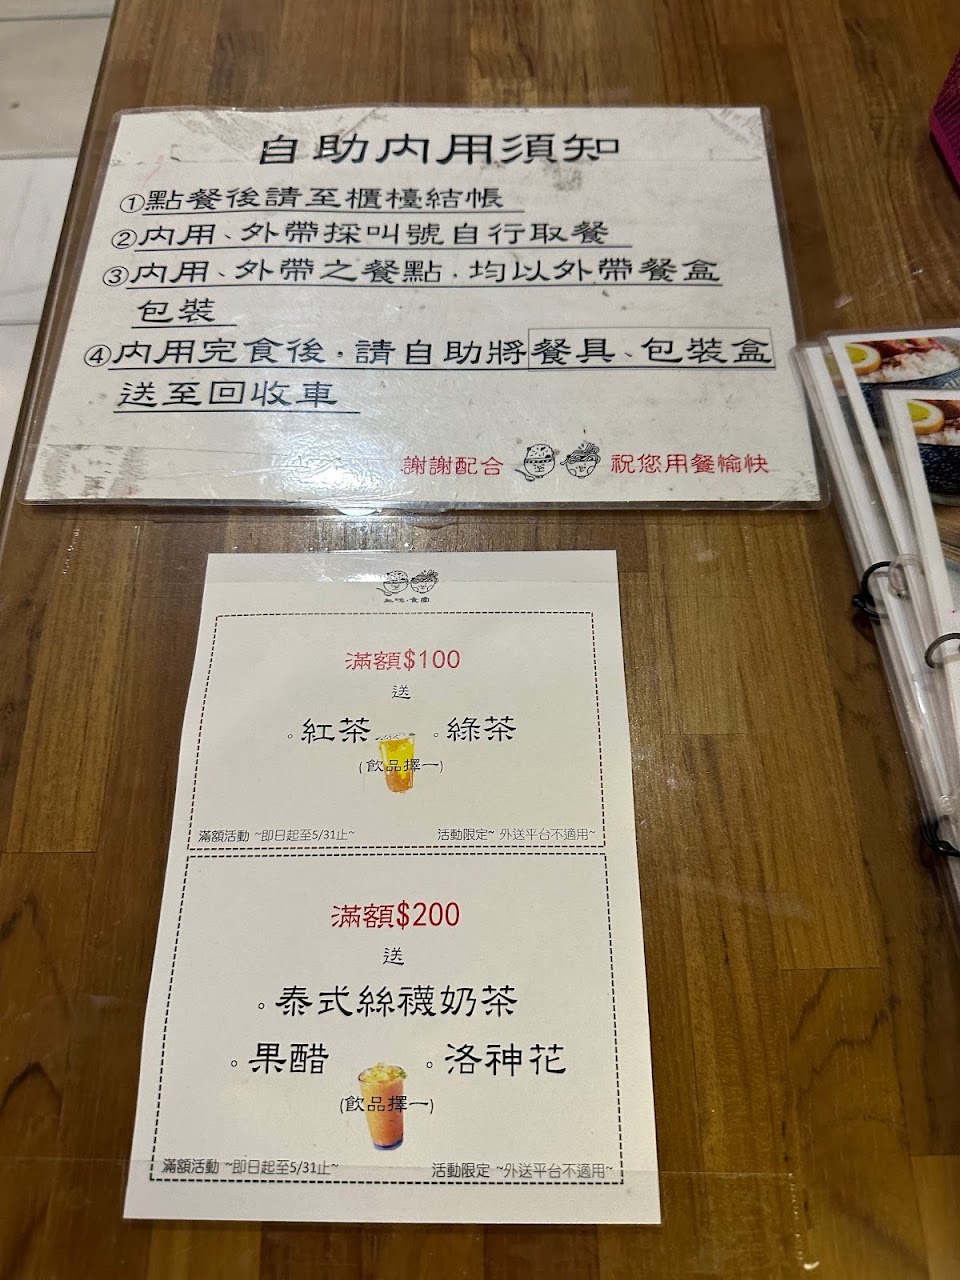 自助內用須知
①點餐後請至櫃檯結帳
②內用、外帶採叫號自行取餐
③內用、外帶之餐點,均以外帶餐盒
包裝
④內用完食後,請自助將餐具、包裝盒
送至回收車
謝謝配合 祝您用餐愉快
滿額$100
送
。紅茶 。綠茶
(飲品擇一)
滿額活動 ~即日起至5/31止~ 活動限定~ 外送平台不適用~
滿額$200
送
。泰式絲襪奶茶
。果醋 。洛神花
(飲品擇一)
滿額活動 ~即日起至5/31止~ 活動限定 ~外送平台不適用~